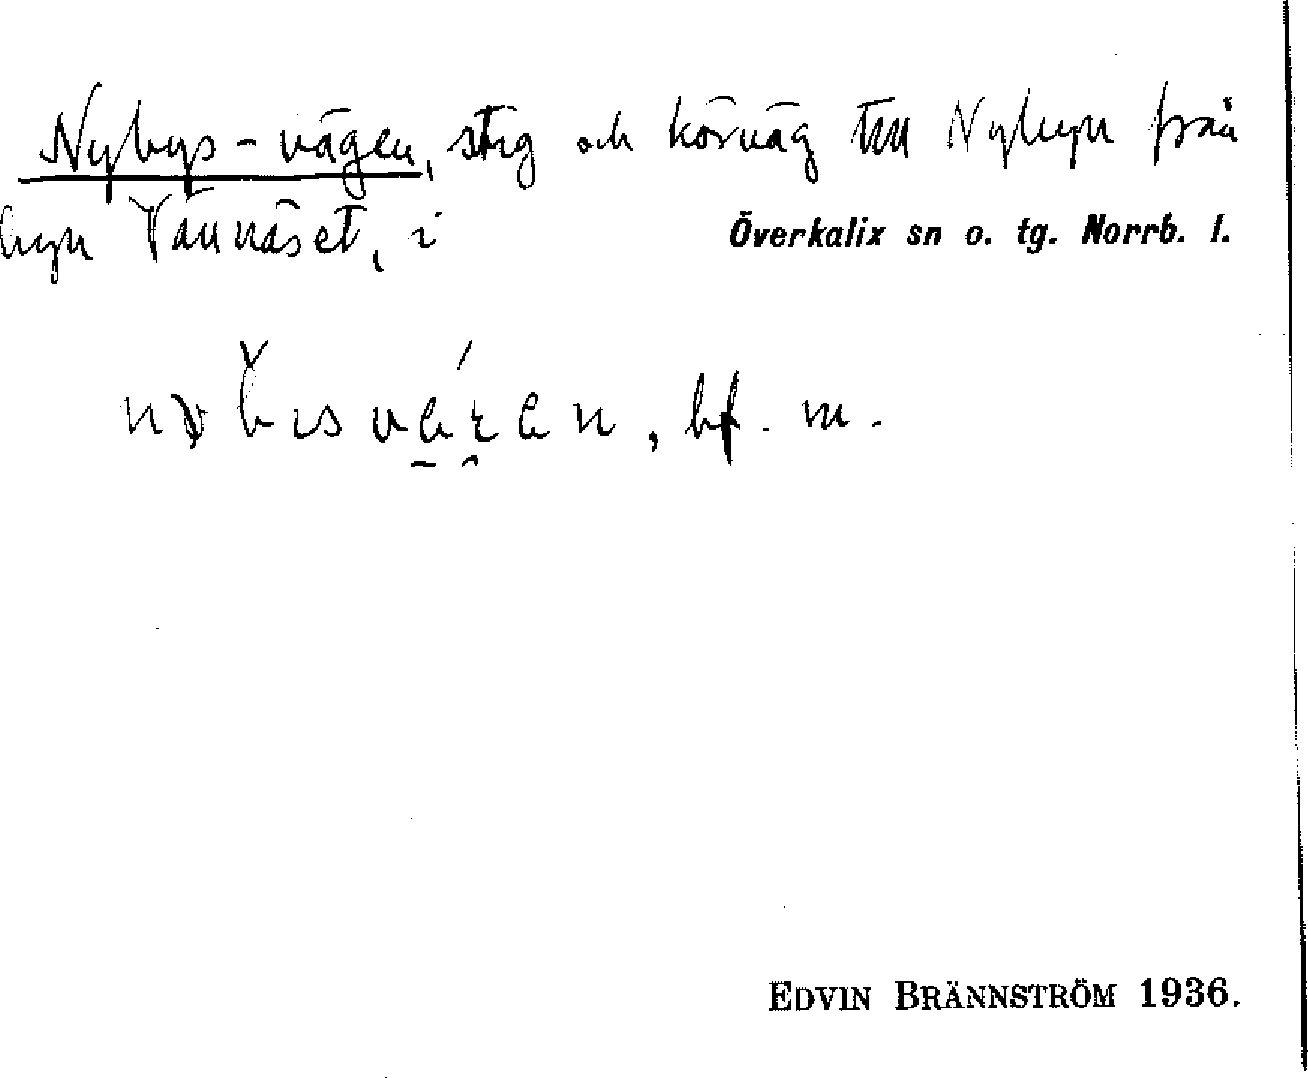 Nybys-vägen, stig och körväg till Nybyn från
byn Vännäset, i Överkalix sn o. tg. Norrb. l.
bf. m.
EDVIN BRÄNNSTRÖM 1936.